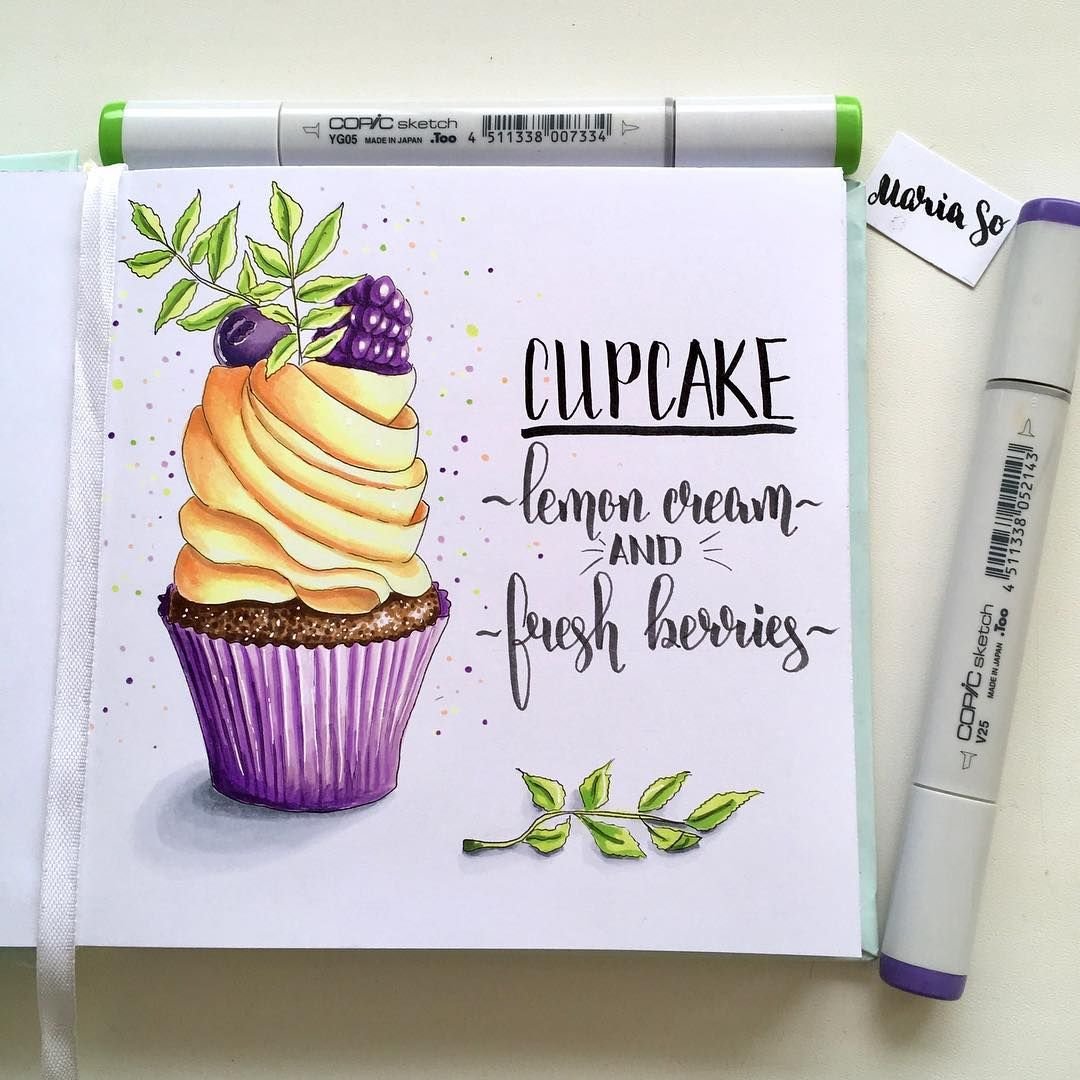 COPIC sketch
YG05 MADE IN JAPAN .Too 4 511338 007334
Maria So
CUPCAKE
~lemon cream~
AND
~fresh berries~
COPIC sketch
V25 MADE IN JAPAN .Too 4 511338 052143